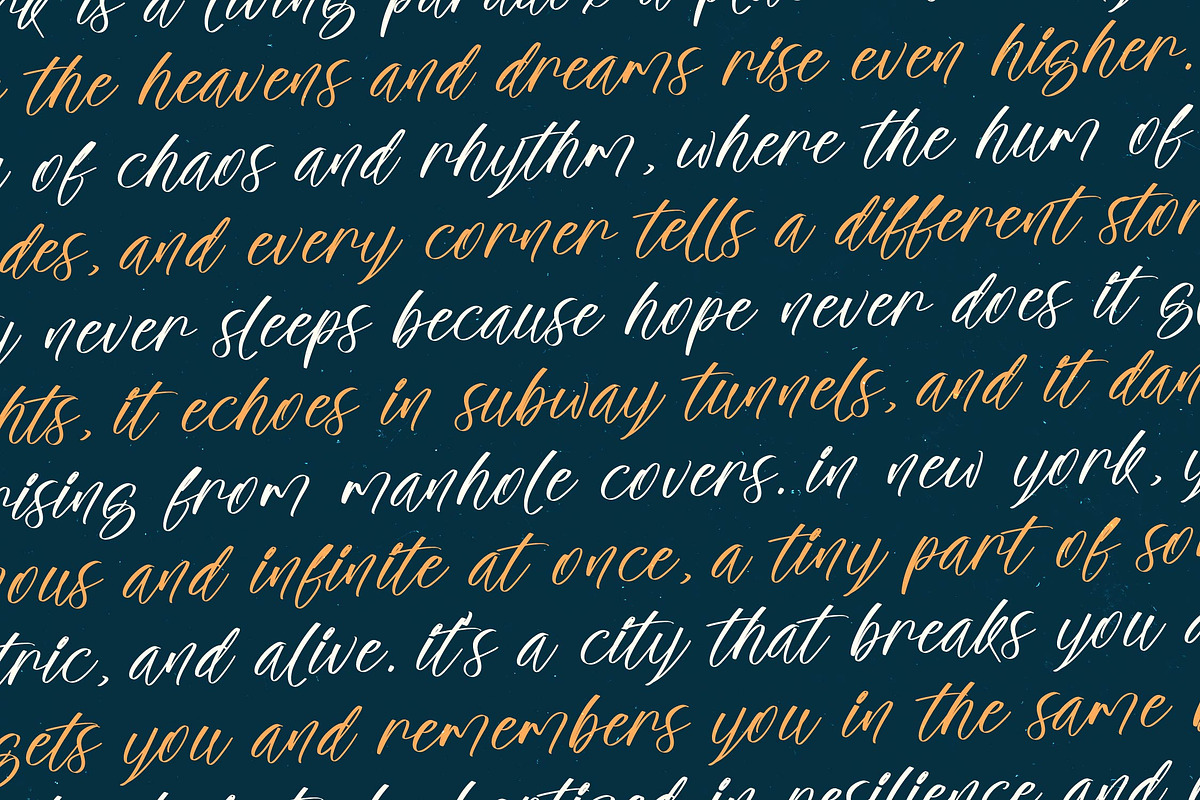 is a living paradox a
the heavens and dreams rise even higher.
of chaos and rhythm, where the hum of
des, and every corner tells a different stor
y never sleeps because hope never does it g
hts, it echoes in subway tunnels, and it dan
rising from manhole covers. in new york, y
ous and infinite at once, a tiny part of so
tric, and alive. it's a city that breaks you a
gets you and remembers you in the same
baptized in resilience and